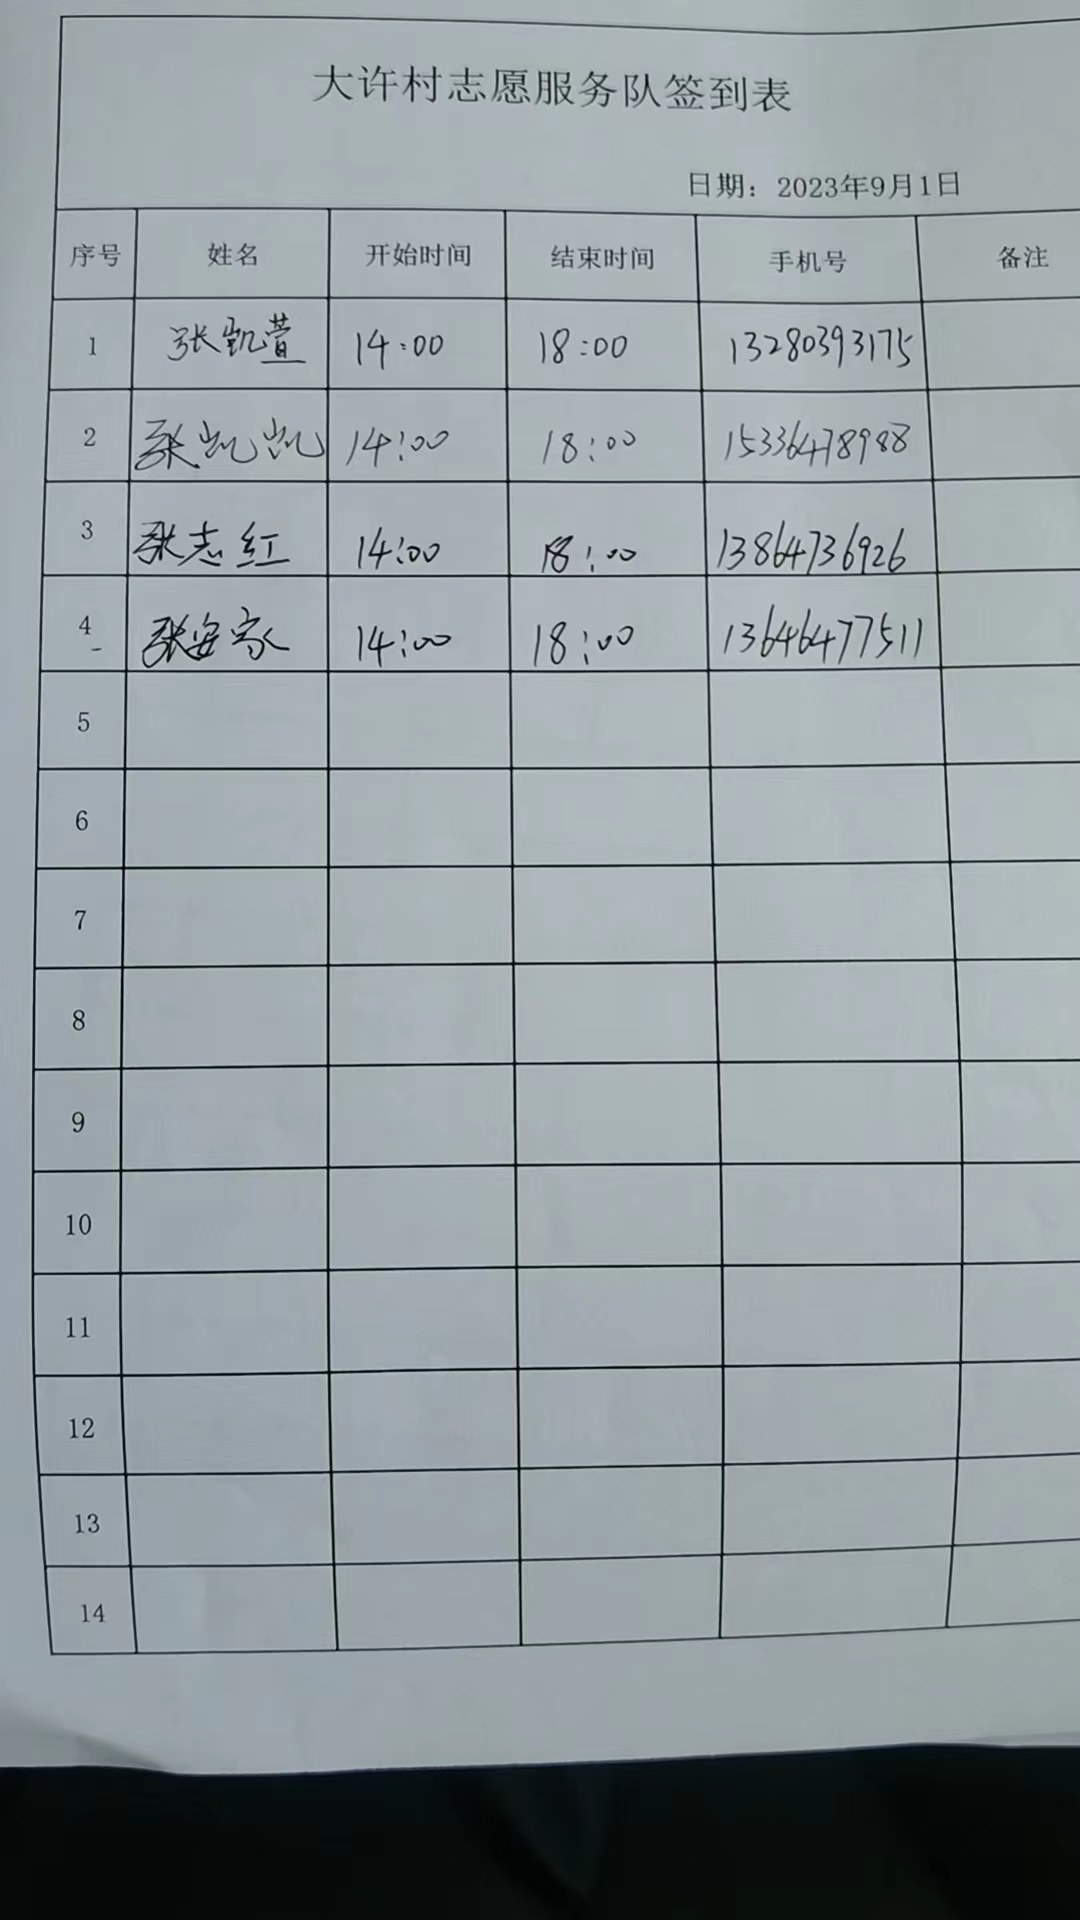 大许村志愿服务队签到表
日期：2023年9月1日
序号 姓名 开始时间 结束时间 手机号 备注
1 张凯萱 14:00 18:00 13280393175
2 张凯凯 14:00 18:00 15336478988
3 张志红 14:00 18:00 13864736926
4 张安家 14:00 18:00 13646477511
5
6
7
8
9
10
11
12
13
14